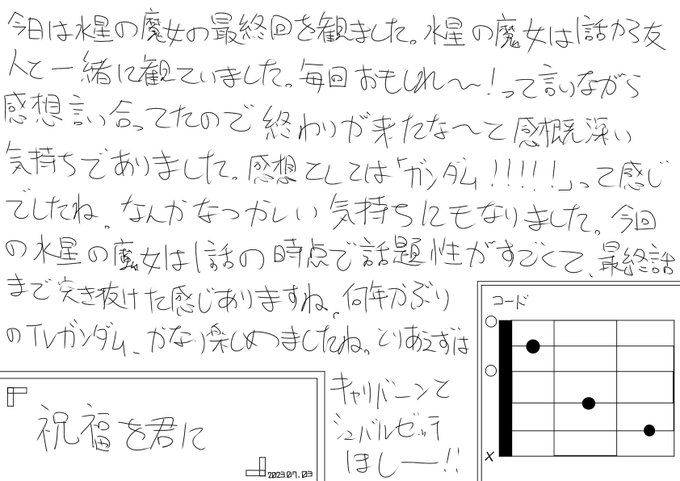 今日は水星の魔女の最終回を観ました。水星の魔女は1話から友
人と一緒に観ていました。毎回おもしれ〜!って言いながら
感想言い合ってたので終わりが来たな〜と感慨深い
気持ちでありました。感想としては「ガンダム!!!!!」って感じ
でしたね。なんかなつかしい気持ちにもなりました。今回
の水星の魔女は1話の時点で話題性がすごくて、最終話
まで突き抜けた感じありますね。何年かぶり
のTVガンダム、かなり楽しめつましたね。とりあえずは
キャリバーンと
シュバルゼッテ
ほしー!!
祝福を君に
2023.07.03
コード